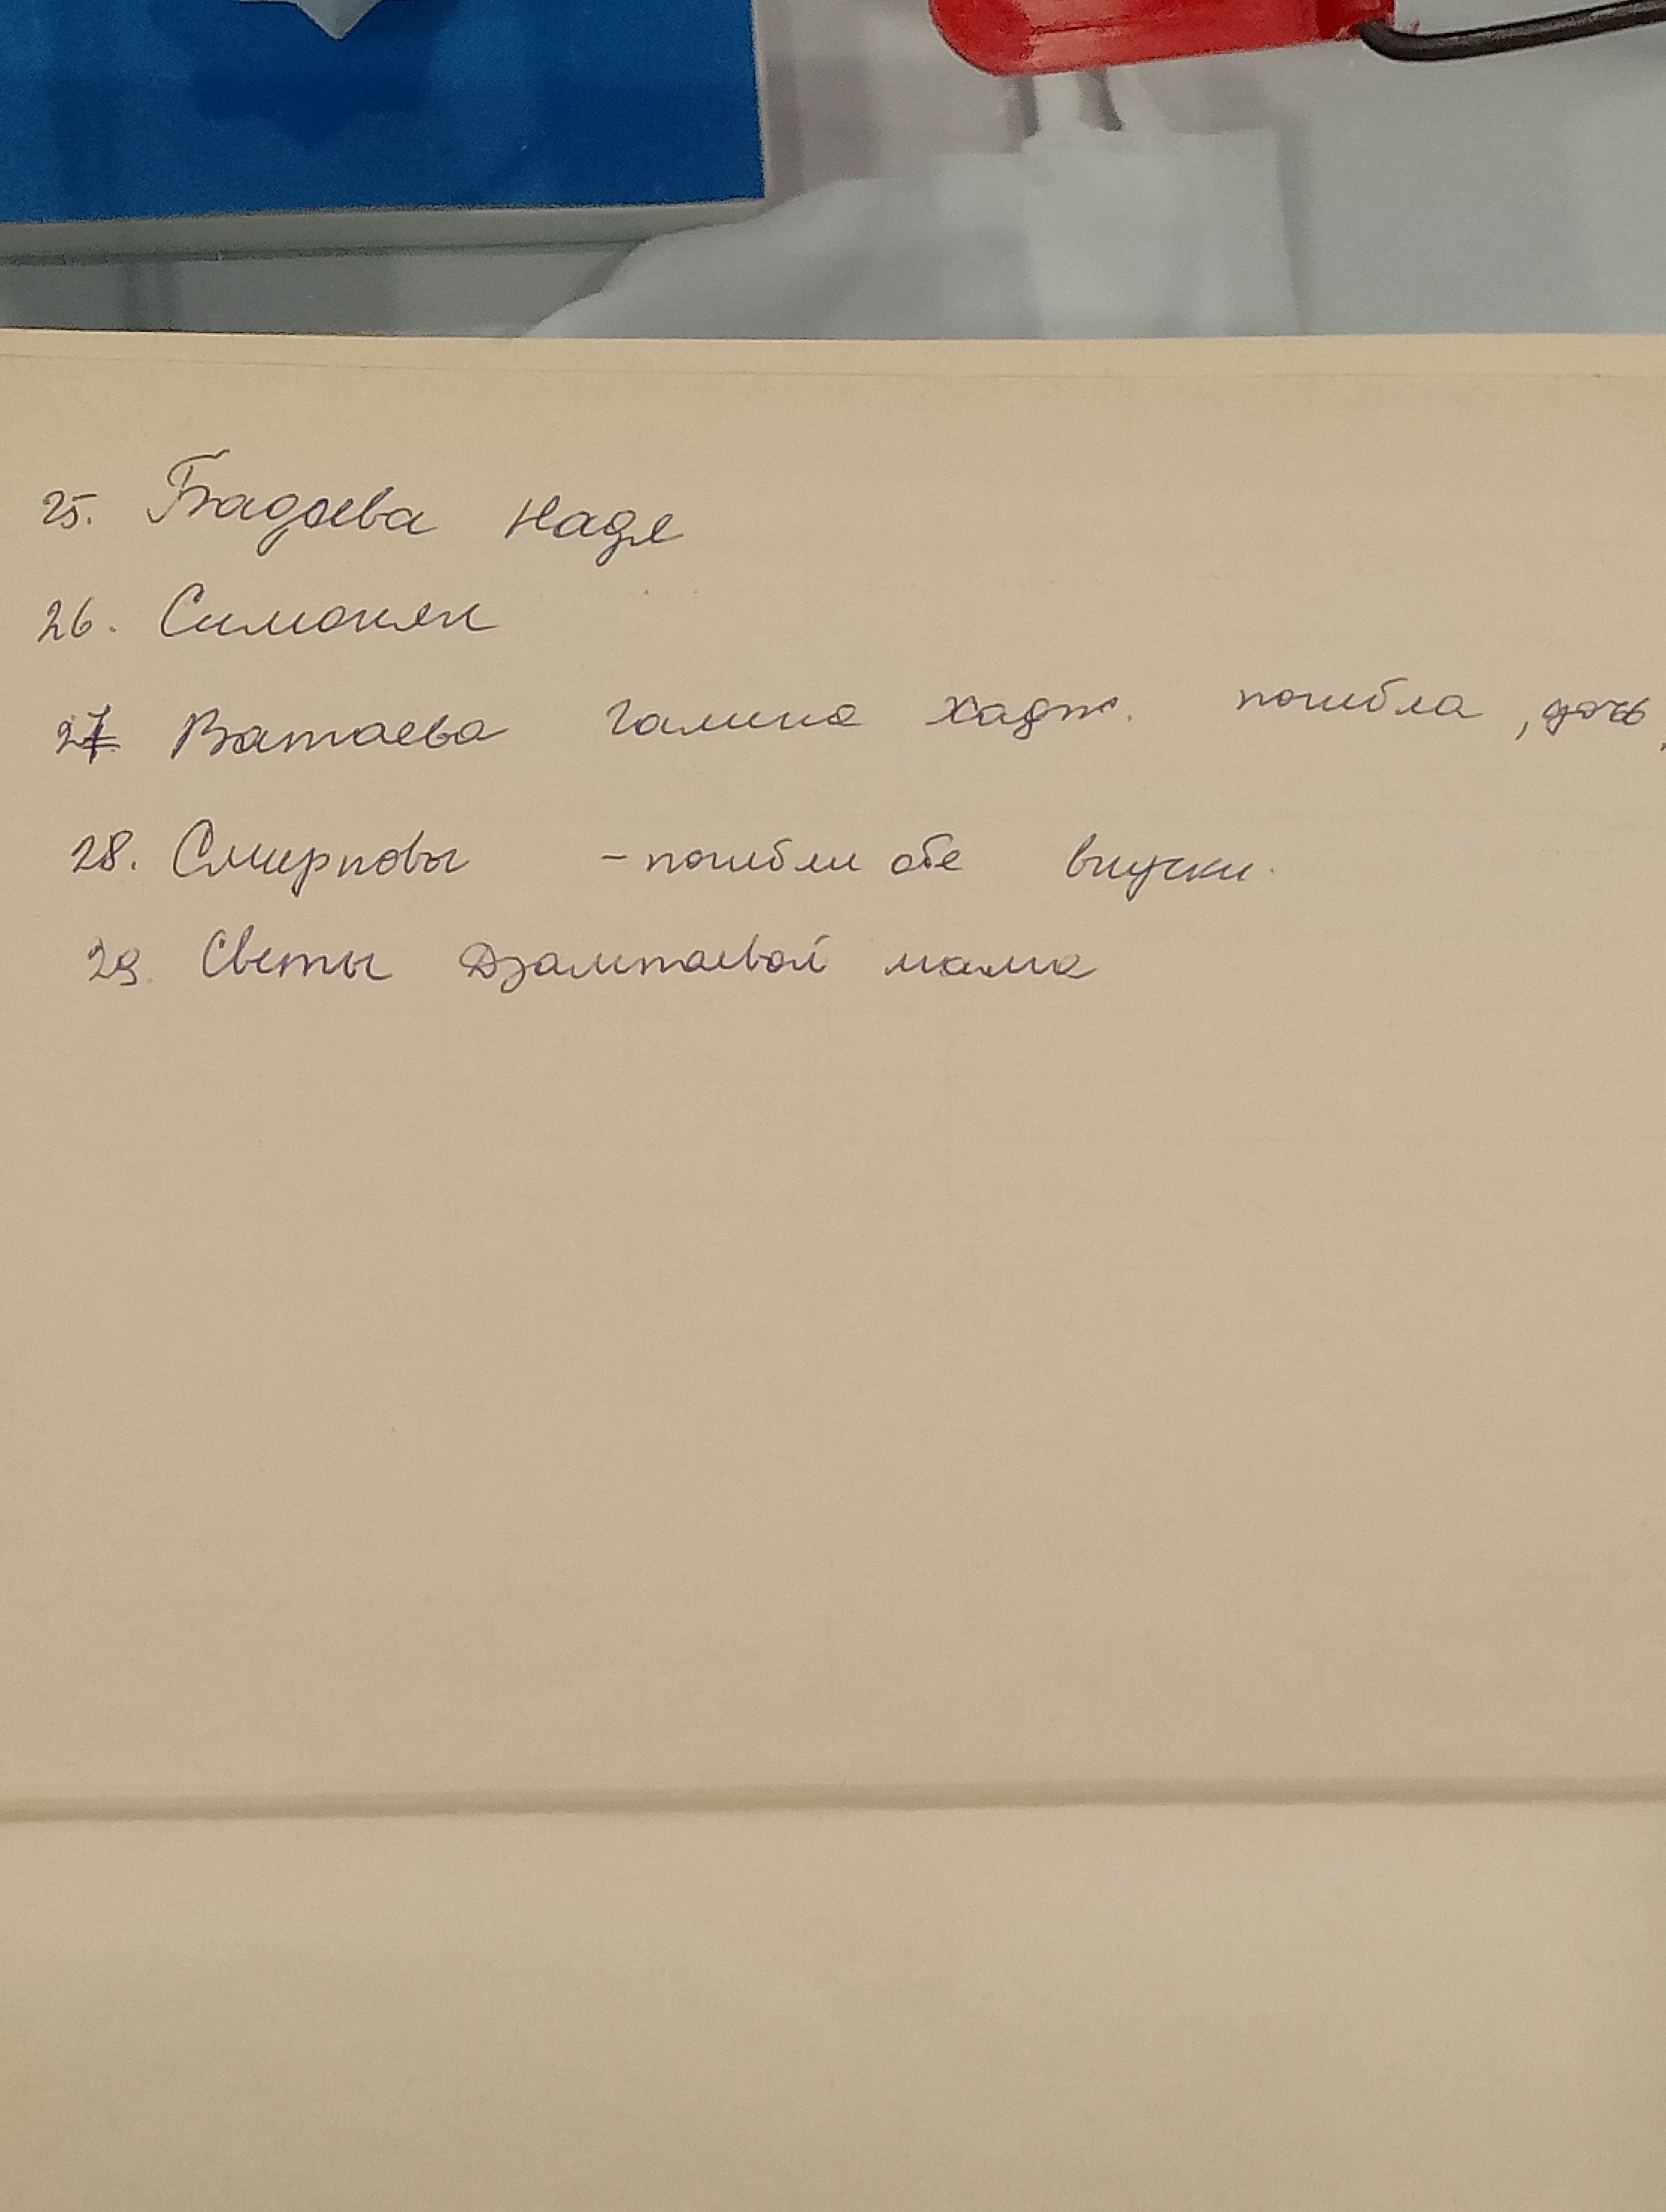 25. Бадоева Надя
26. Симонян
27 Ватаева Галина Хадж. погибла, дочь,
28. Смирновы - погибли обе внучки.
29. Светы Дзампаевой мама